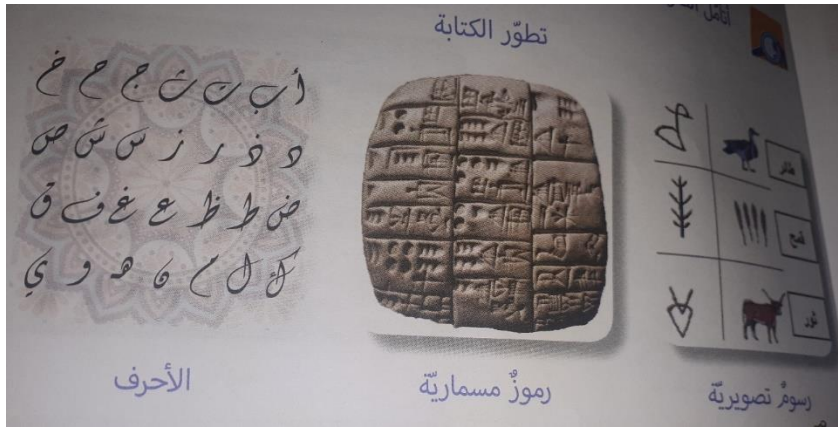 تطوّر الكتابة
طائر
قمح
ثور
رسومٌ تصويريّة
رموزٌ مسماريّة
أ ب ت ث ج ح خ
د ذ ر ز س ش ص
ض ط ظ ع غ ف ق
ك ل م ن ه و ي
الأحرف